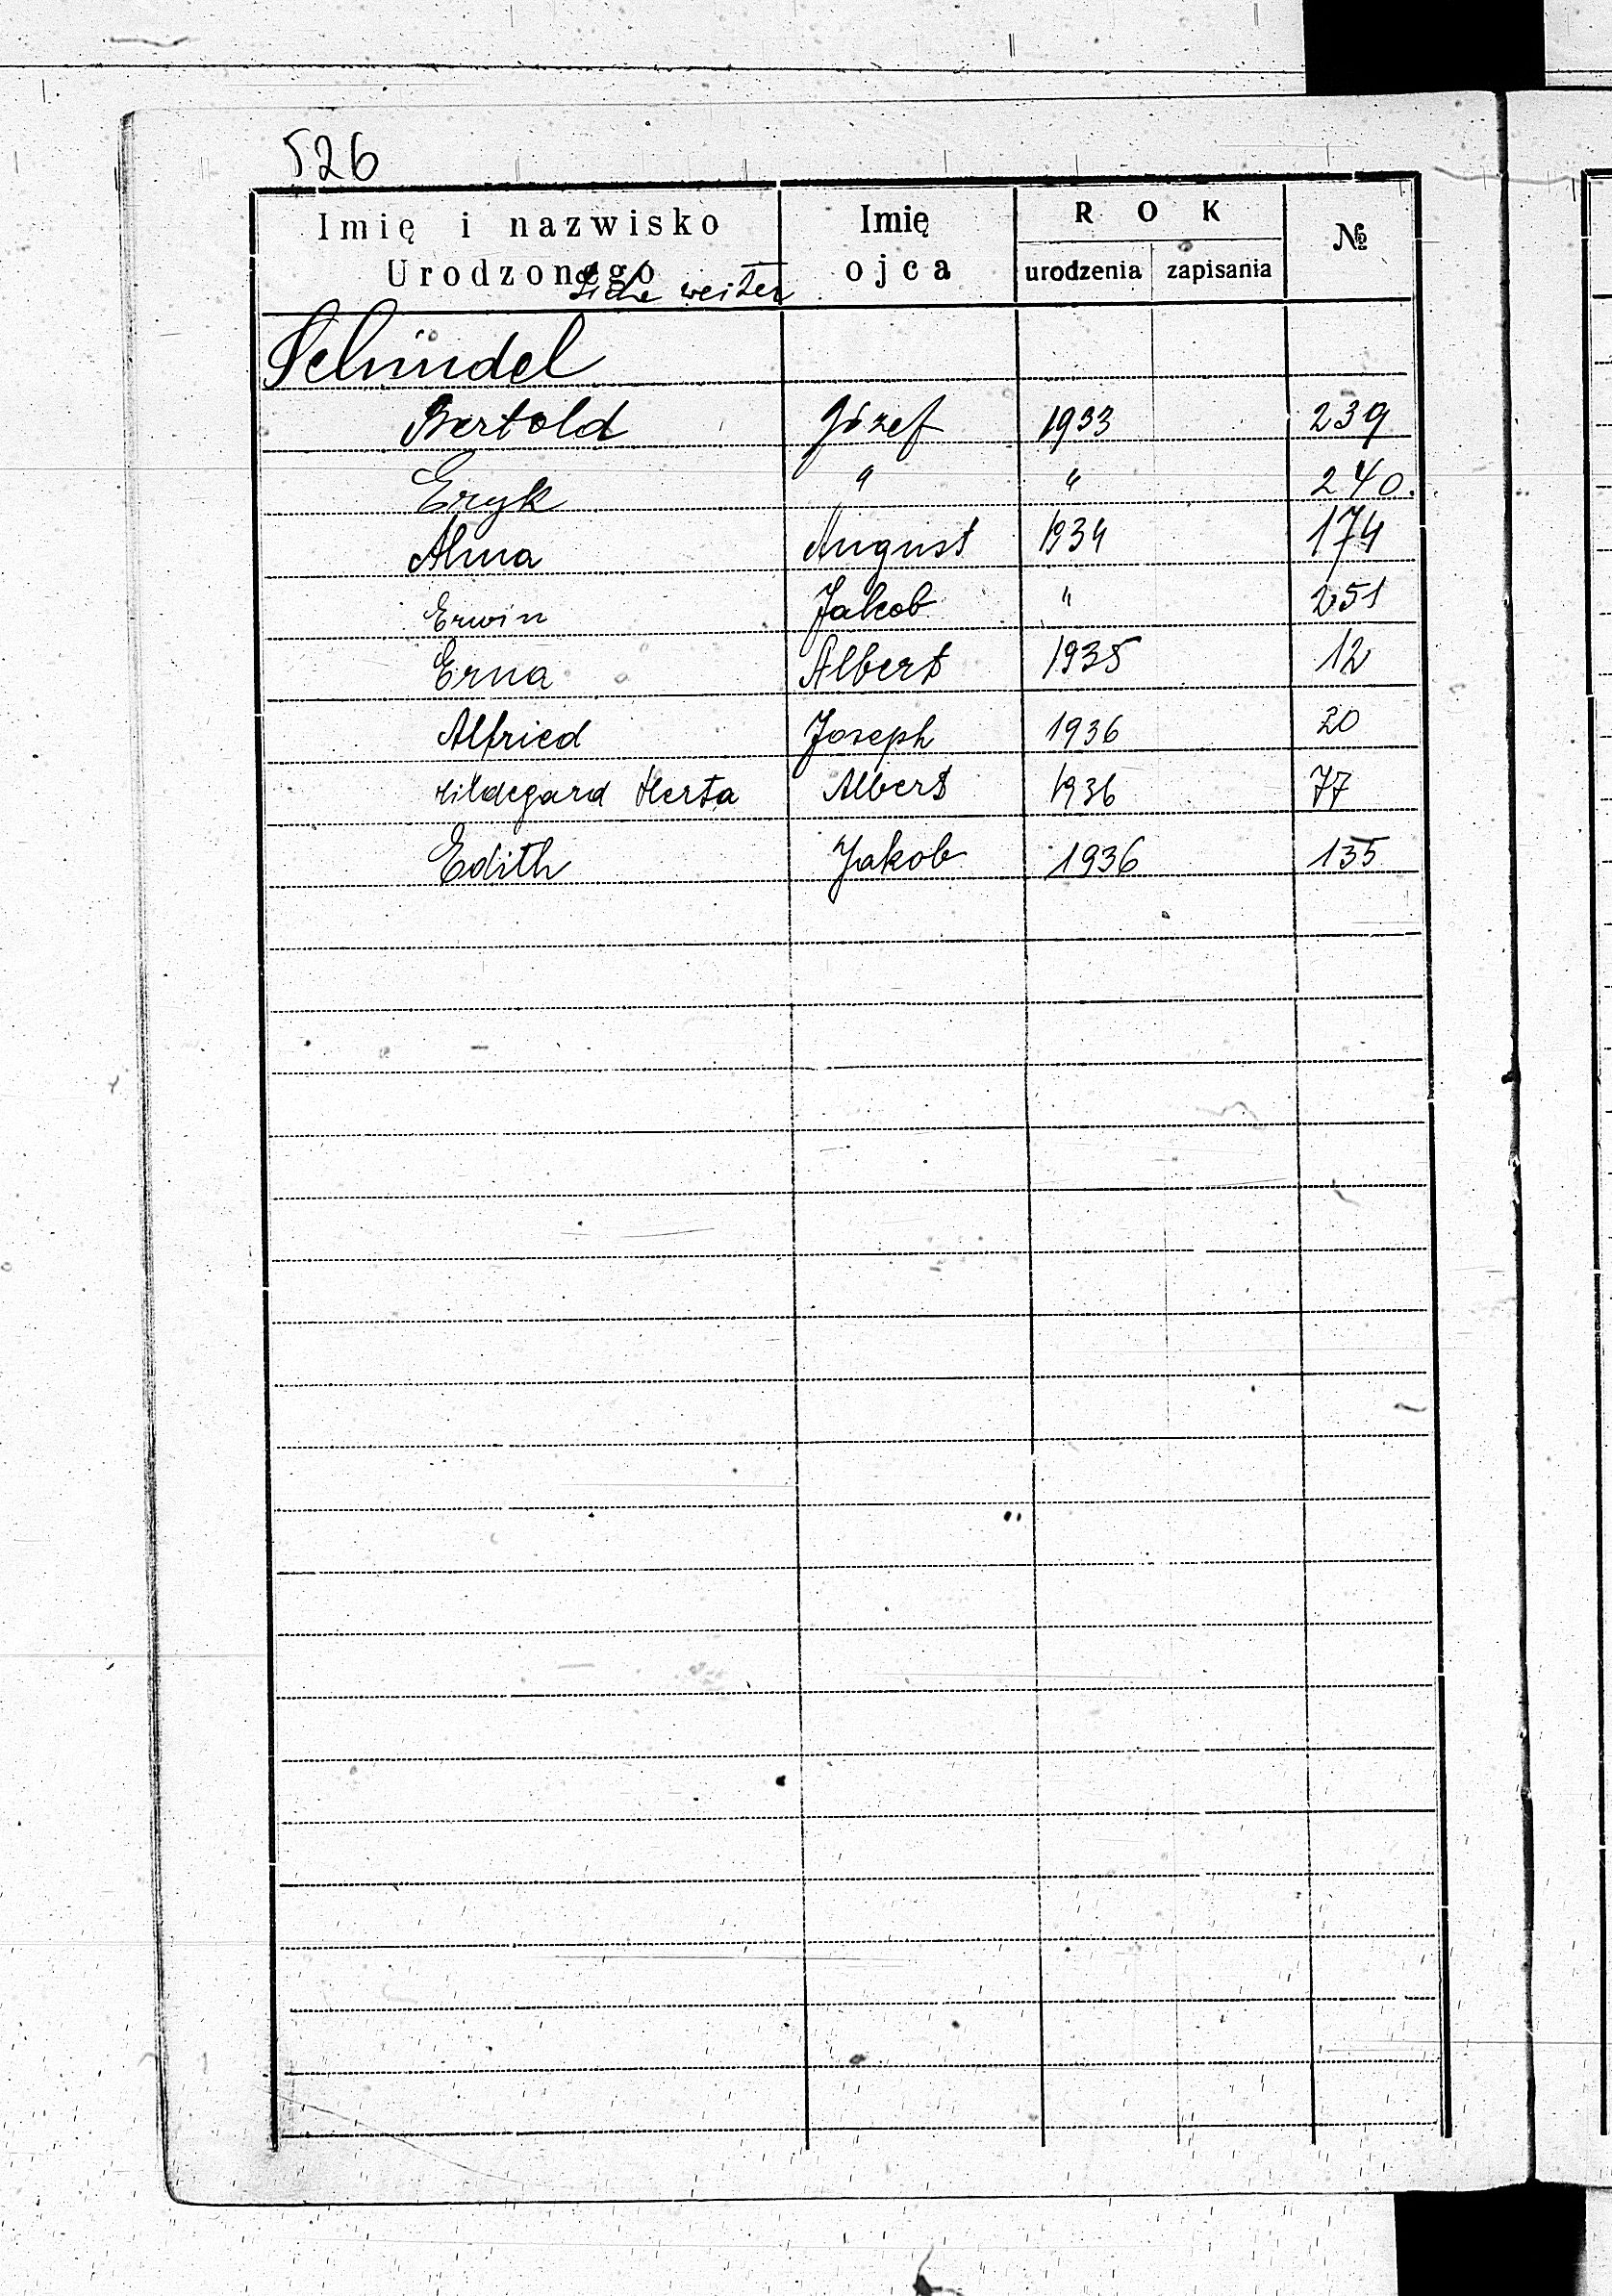 526
Imię i nazwisko Urodzonego
Imię ojca
ROK
urodzenia
zapisania
№
Siehe weiter
Schindel
Bertold Józef 1933 239
Eryk " " 240.
Alma August 1934 174
Erwin Jakob " 251
Erna Albert 1935 12
Alfried Joseph 1936 20
Hildegard Herta Albert 1936 77
Edith Jakob 1936 135